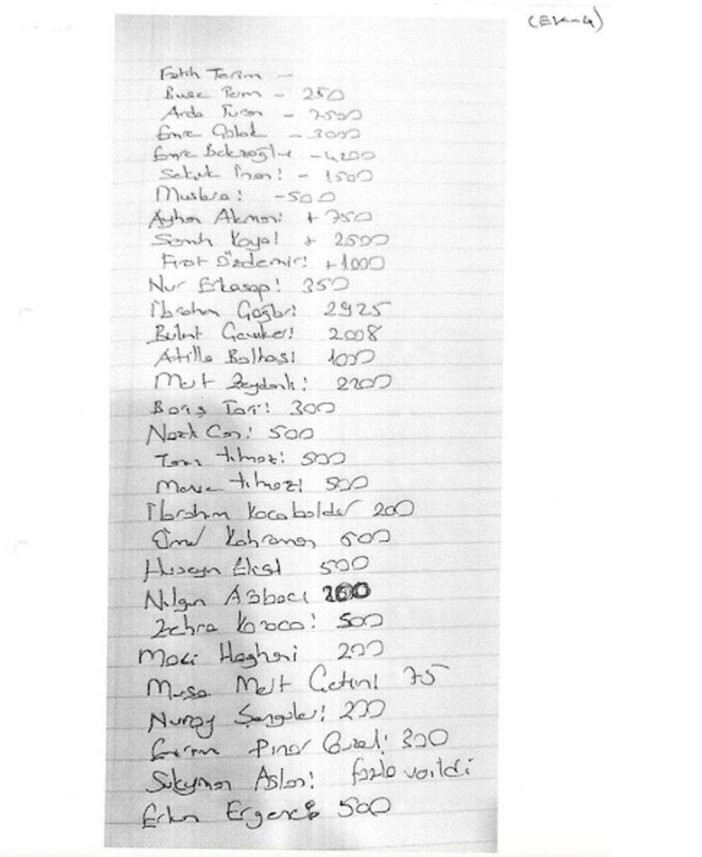 (EK-4)
Fatih Terim -
Buse Terim - 250
Arda Turan - 7500
Emre Çolak - 3000
Emre Belezoğlu - 4200
Selçuk İnan: - 1500
Muslera: -500
Ayhan Akman: + 750
Semih Kaya! + 2500
Fırat Özdemir: +1000
Nur Erkasap: 350
İbrahim 2925
Bülent Çeviker: 2008
Atilla Baltaş: 1000
Mert Zeydanlı: 2200
Barış 300
Nazlı Can: 500
Yılmaz: 500
Merve Yılmaz: 500
İbrahim Kocabaldır 200
Kahraman 600
Hüseyin Eligül 500
Nilgün 200
Zehra Karaca: 500
Haghani 200
Musa Mert Çetin: 75
Nuray Şengüler: 200
Pınar Güzel: 300
Süleyman Aslan: fazla verildi
Erkan 500